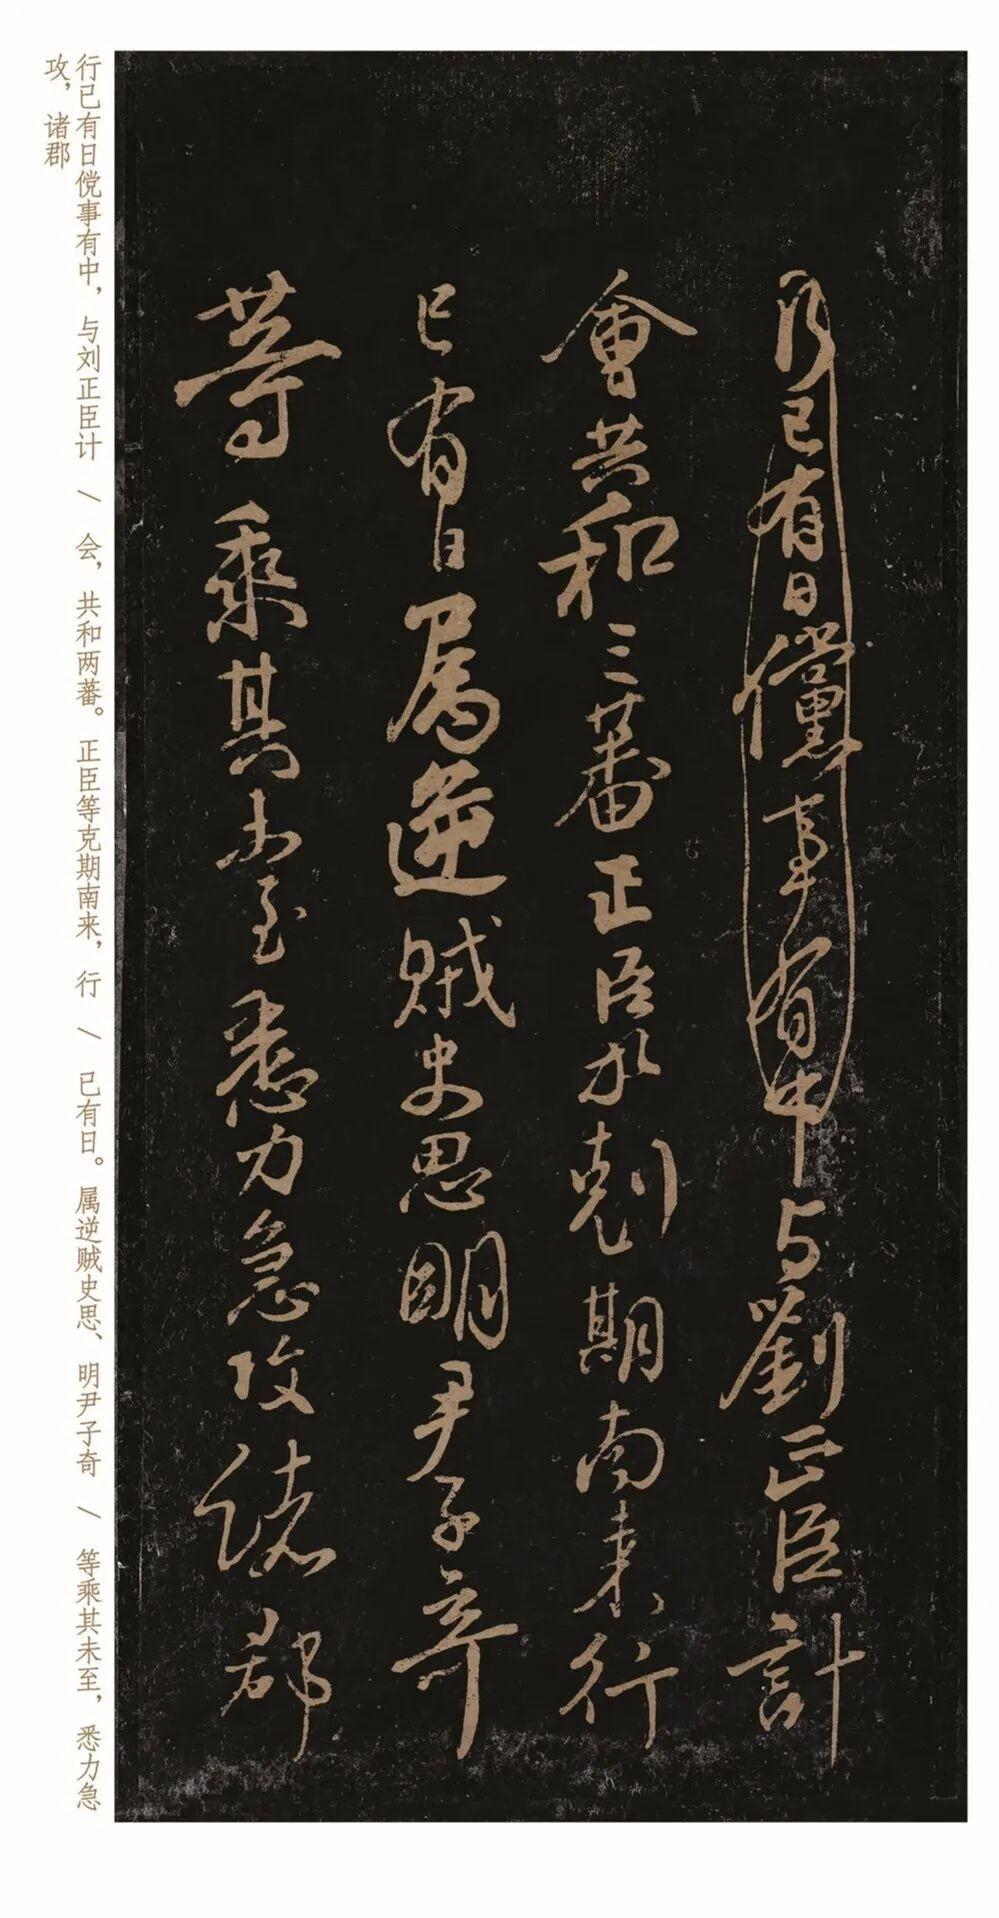 行已有日儻事有中与劉正臣計
會共和兩蕃正臣等剋期南来行
已有日属逆賊史思明尹子奇
等乘其未至悉力急攻諸郡
行已有日傥事有中，与刘正臣计 / 会，共和两蕃。正臣等克期南来，行 / 已有日。属逆贼史思、明尹子奇 / 等乘其未至，悉力急
攻，诸郡